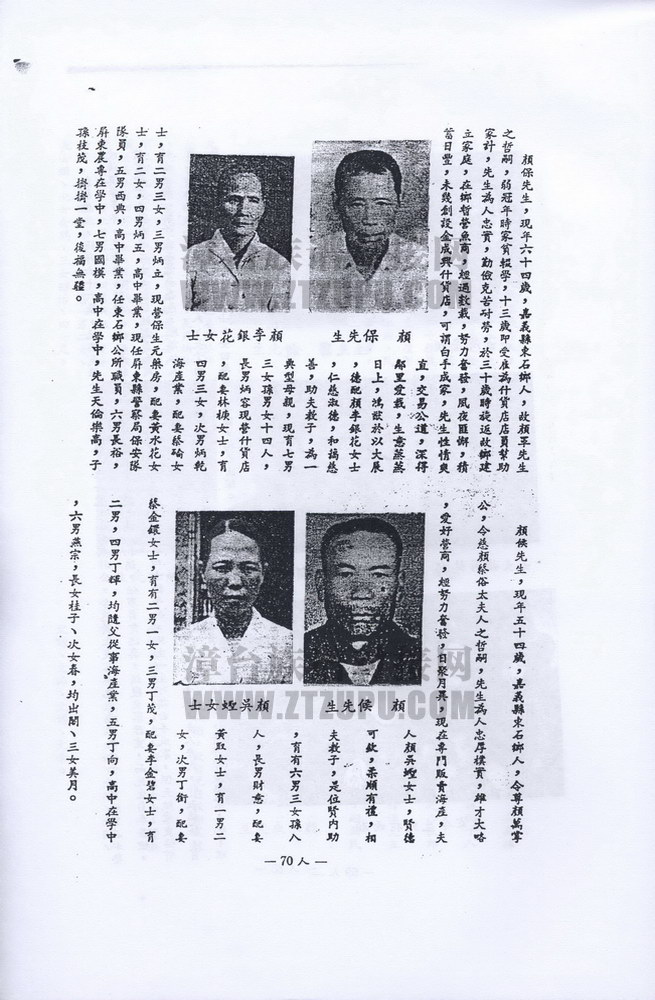 顏保先生，現年六十四歲，嘉義縣東石鄉人，故顏罩先生
之哲嗣，弱冠年時家貧輟學，十三歲即受雇為什貨店店員幫助
家計，先生為人忠實，勤儉克苦耐勞，於三十歲時旋返故鄉建
立家庭，在鄉暫營魚商，經過數載，努力奮發，夙夜匪懈，積
蓄日豐，未幾創設金成興什貨店，可謂白手成家，先生性情爽
直，交易公道，深得
鄰里愛載，生意蒸蒸
日上，鴻猷於以大展
，德配顏李銀花女士
，仁慈淑德，和藹慈
善，助夫教子，為一
典型母親，現有七男
三女孫男女十四人，
長男炳容現營什貨店
，配妻林樉女士，育
四男三女，次男炳乾
海產業，配妻蔡碖女
士，育二男三女，三男炳立，現營保生元藥房，配妻黃水花女
士，育二女，四男炳五，高中畢業，現任屏東縣警察局保安隊
隊員，五男西典，高中畢業，任東石鄉公所職員，六男長裕，
屏東農專在學中，七男國棋，高中在學中，先生天倫樂高，子
孫枝茂，擠擠一堂，後福無疆。
顏保先生
顏李銀花女士
顏候先生，現年五十四歲，嘉義縣東石鄉人，令尊顏萬掌
公，令慈顏蔡俗太夫人之哲嗣，先生為人忠厚樸實，雄才大略
，愛好營商，經努力奮發，日聚月異，現在專門販賣海產，夫
人顏吳蟶女士，賢德
可欽，柔順有禮，相
夫教子，是位賢內助
，育有六男三女孫八
人，長男財意，配妻
黃取女士，育一男二
女，次男丁銜，配妻
蔡金鐶女士，育有二男一女，三男丁茂，配妻李金碧女士，育
二男，四男丁輝，均隨父從事海產業，五男丁向，高中在學中
，六男燕宗，長女桂子、次女春，均出閣、三女美月。
顏候先生
顏吳蟶女士
— 70 人 —
漳台族譜對接網
WWW.ZTZUPU.COM
漳台族譜對接网
WWW.ZTZUPU.COM